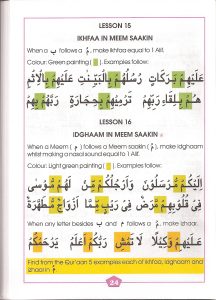 LESSON 15
IKHFAA IN MEEM SAAKIN
When a ب follows a مْ, make Ikhfaa equal to 1 Alif.
Colour: Green painting ( ). Examples follow:
عَلَيْهِمْ بَرَكَاتٍ رُسُلُهُمْ بِالْبَيِّنٰتِ عَلَيْهِمْ بِالْاِثْمِ
هُمْ بِلِقَآءِ رَبِّهِمْ تَرْمِيْهِمْ بِحِجَارَةٍ رَبَّهُمْ بِهِمْ
LESSON 16
IDGHAAM IN MEEM SAAKIN
When a Meem ( م ) follows a Meem saakin ( مْ ), make idghaam
whilst making a nasal sound equal to 1 Alif.
Colour: Light green painting ( ). Examples follow:
اِلَيْكُمْ مُّرْسَلُوْنَ وَاَرْجُلَكُمْ مِّنْ لَهُمْ مُّوْسٰى
فِيْ قُلُوْبِهِمْ مَّرَضٌ فِيْ رَيْبٍ مِّمَّا اَزْوَاجٌ مُّطَهَّرَةٌ
When any letter besides ب and م follows a مْ, make Izhaar.
عَلَيْهِمْ وَكِيْلًا لَا تَمْشِ رَبُّكُمْ اَعْلَمُ يَرْحَمْكُمْ
Find from the Qur'aan 5 examples each of ikhfaa, idghaam and
izhaar in مْ.
24